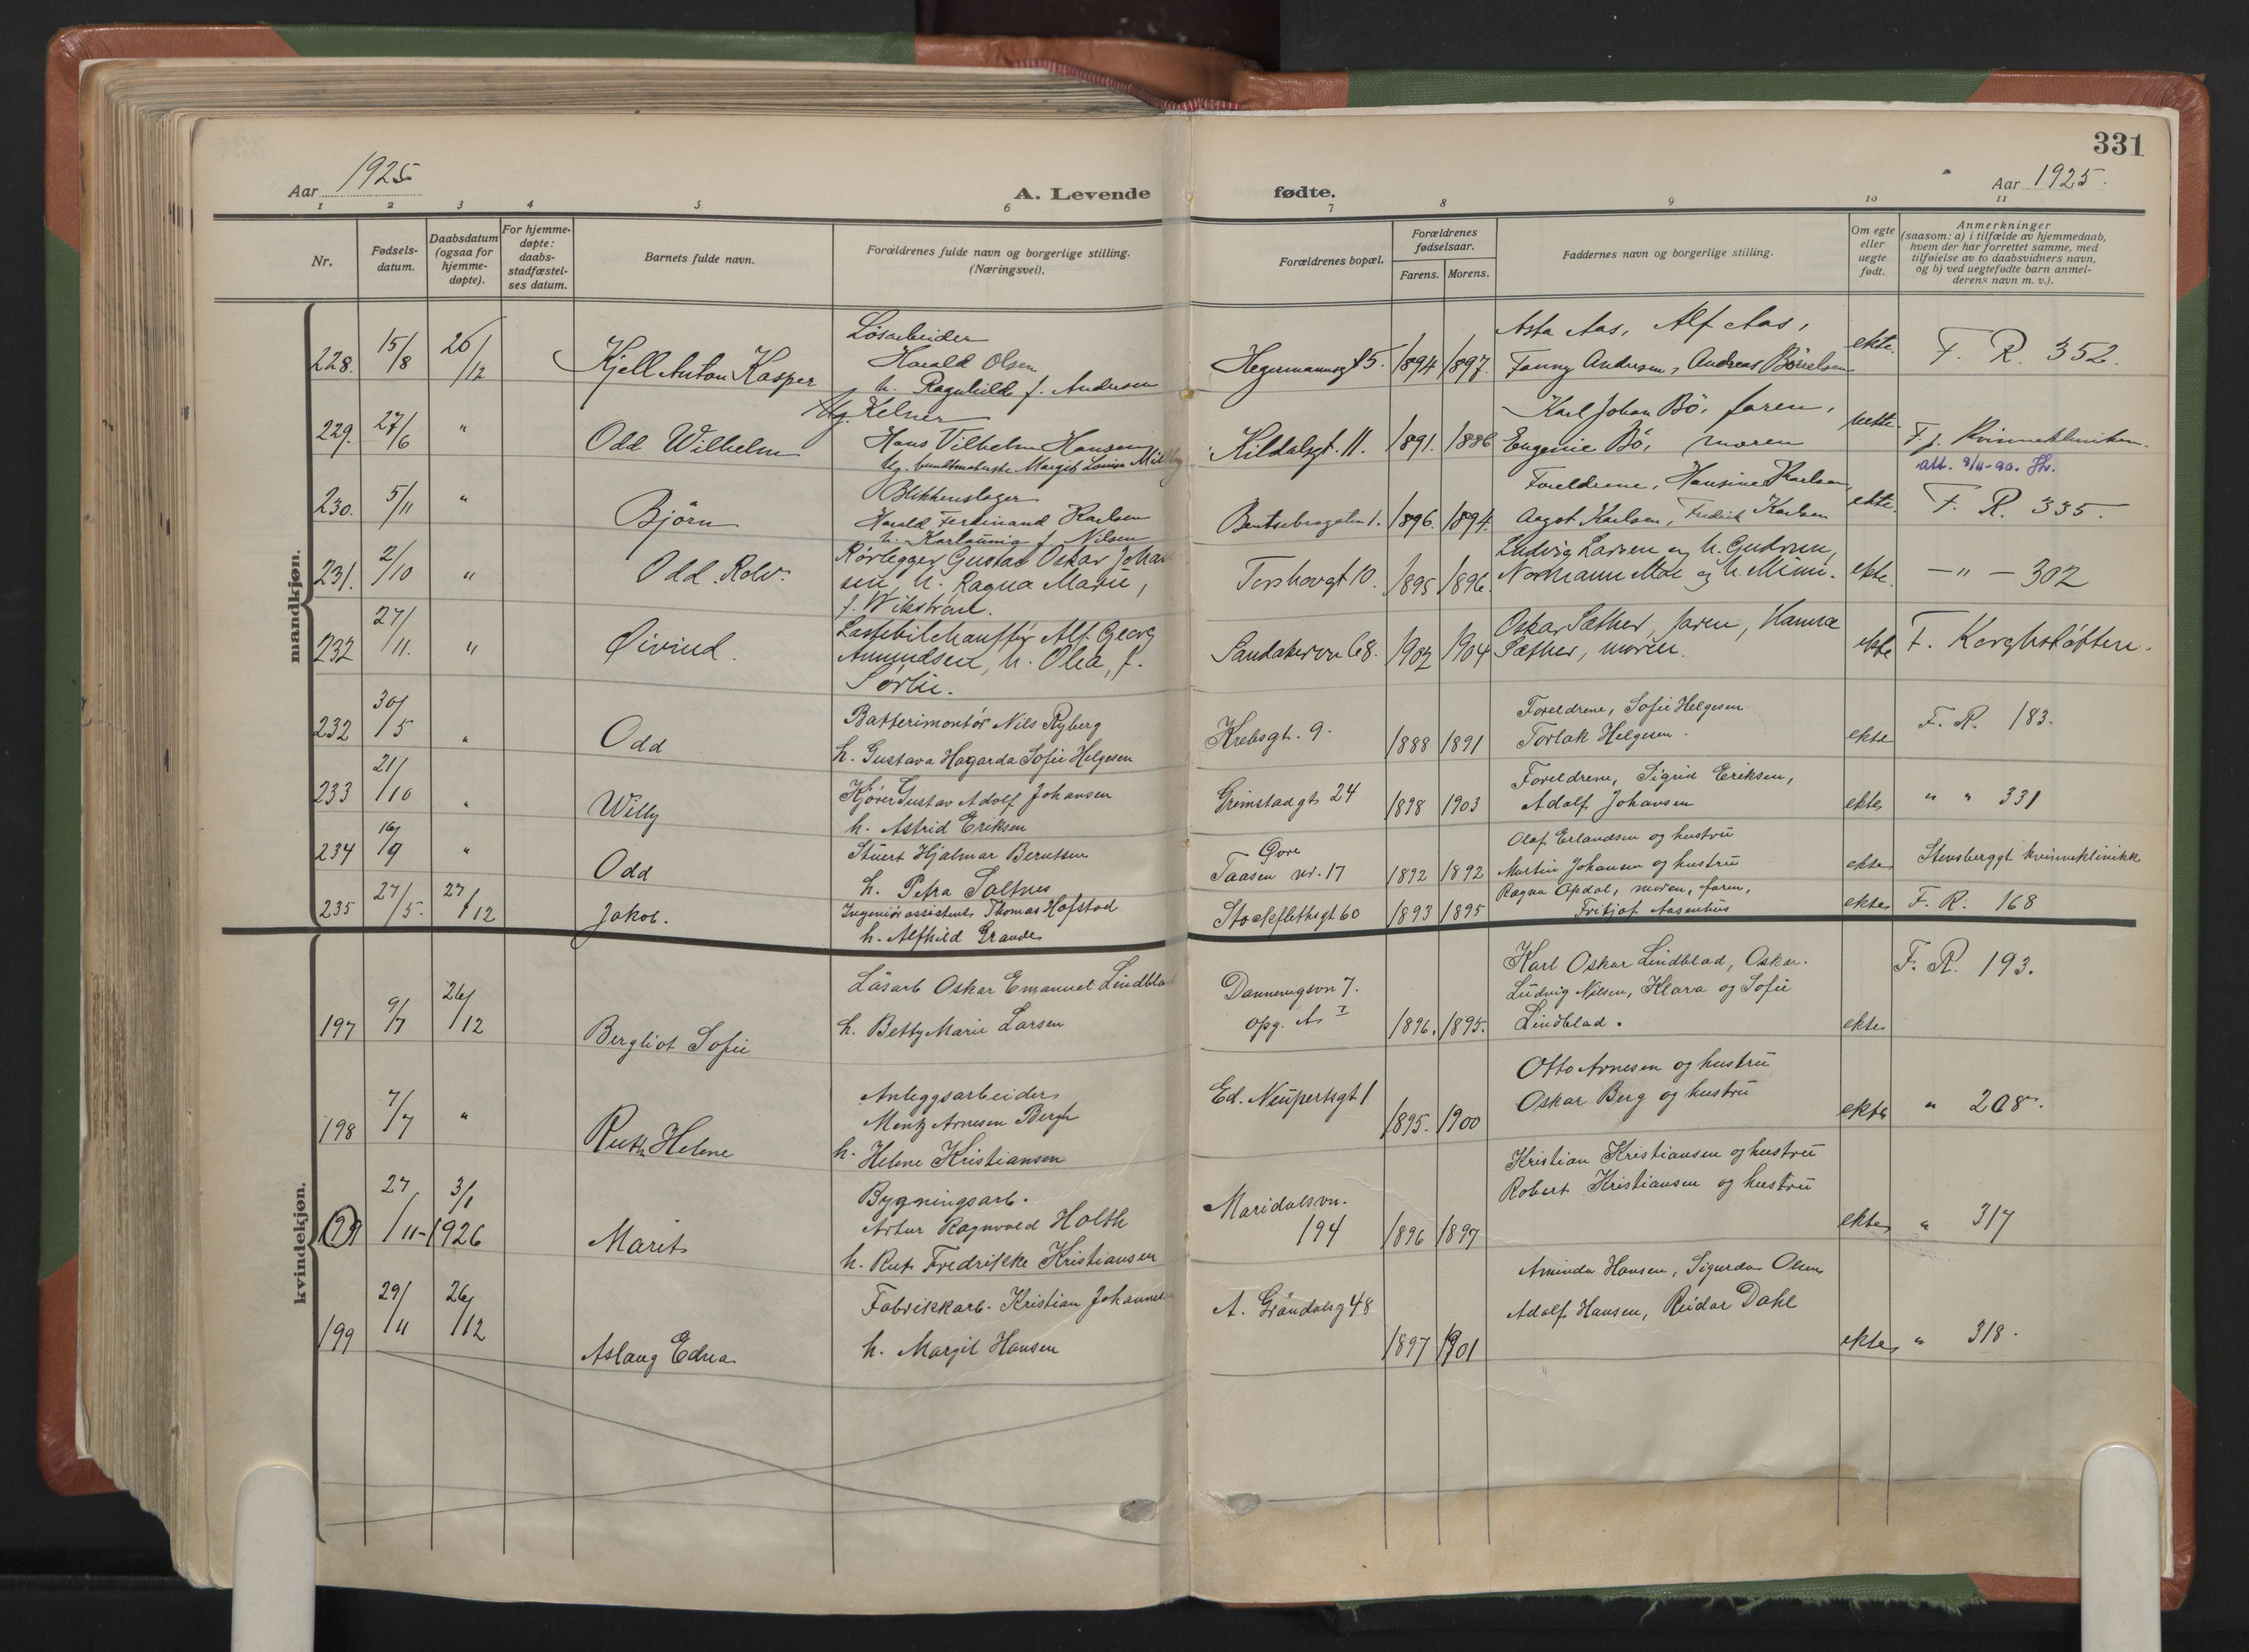 331
Aar 1925
A. Levende
fødte.
Aar 1925.
1 2 3 4 5 6 7 8 9 10 11
Nr.
Fødsels-
datum.
Daabsdatum
(ogsaa for
hjemme-
døpte).
For hjemme-
døpte:
daabs-
stadfæstel-
ses datum.
Barnets fulde navn.
Forældrenes fulde navn og borgerlige stilling.
(Næringsvei).
Forældrenes bopæl.
Forældrenes
fødselsaar.
Farens. Morens.
Faddernes navn og borgerlige stilling.
Om egte
eller
uegte
født.
Anmerkninger
(saasom: a) i tilfælde av hjemmedaab,
hvem der har forrettet samme, med
tilføielse av to daabsvidners navn,
og b) ved uegtefødte barn anmel-
derens navn m. v.).
mandkjøn.
228. 15/8 26/12 Kjell Anton Kasper
Løsarbeider
Harald Olsen
h. Ragnhild f. Andresen
Hegermannsgt 5. 1894 1897.
Asta Aas, Alf Aas,
Fanny Andresen, Andreas
ekte. F. R. 352.
229. 27/6 " Odd Wilhelm
Ug. Kelner
Hans Vilhelm Hansen
Ug. Margit Lovise
Kildalsgt. 11. 1891. 1886
Karl Johan Bö, faren,
Eugenie Bö, moren
uekte F. f. Kvinneklinikken.
att. 9/11-90.
230. 5/11 " Björn
Blikkenslager
Harald Ferdinand Karlsen
h. Karlaunia f. Nilsen
Bentsebrogaten 1. 1896. 1894.
Foreldrene, Hansine Karlsen
Aagot Karlsen, Fredrik Karlsen
ekte. F. R. 335.
231. 2/10 " Odd Rolv.
Rørlegger Gustav Oskar Johan
sen, h. Ragna Marie,
f. Wikstrøm.
Torshovgt 10. 1895 1896.
Ludvig Larsen og h. Gudrun,
Normann Moe og h. Mimi.
ekte. — " — 302
232 27/11. " Øivind.
Lastebilchauffør Alf Georg
Amundsen, h. Olea, f.
Sørlie.
Sandakervn 68. 1902 1904
Oskar Sæther, faren, Hanna
Sæther, moren.
ekte F. Kerghstøften.
232 30/5 " Odd
Batterimontör Nils Ryberg
h. Gustava Hagarda Sofie Helgesen
Krebsgt. 9. 1888 1891
Foreldrene, Sofie Helgesen
Torlak Helgesen.
ekte F. R. 183.
233 21/10 " Willy
Kjører Gustav Adolf Johansen
h. Astrid Eriksen
Grimstadgt 24 1898 1903
Foreldrene, Sigrid Eriksen,
Adolf Johansen
ekte " " 331
234 16/9 " Odd
Stuert Hjalmar Berntsen
h. Petra Saltnes
Övre
Taasen nr. 17 1892 1892
Olaf Erlandsen og hustru
Martin Johansen og hustru
ekte Stensberggt kvinneklinikk
235 27/5. 27/12 Jakob.
Ingeniørassistent Thomas Hofstad
h. Alfhild Grande
Stockflethsgt 60 1893 1895
Ragna Opdal, moren, faren,
Fritjof Aasenhus
ekte F. R. 168
kvindekjøn.
197 9/7 26/12 Bergliot Sofie
Lösarb Oskar Emanuel Lindblad
h. Betty Marie Larsen
Dannevigsvn 7.
opg. A I 1896. 1895.
Karl Oskar Lindblad, Oskar.
Ludvig Nilsen, Klara og Sofie
Lindblad.
ekte F. R. 193.
198 7/7 " Ruth Helene
Anleggsarbeider
Mentz Arnesen Bergh
h. Helene Kristiansen
Ed. Neupertsgt 1 1895. 1900
Otto Arnesen og hustru
Oskar Berg og hustru
ekte " 208.
27/11 3/1-1926 Marit
Bygningsarb.
Artur Ragnvald Holth
h. Rut Fredrikke Kristiansen
Maridalsvn.
194 1896 1897
Kristian Kristiansen og hustru
Robert Kristiansen og hustru
ekte " 317
199 29/11 26/12 Aslaug Edna
Fabrikkarb. Kristian Johannes
h. Margit Hansen
A. Gröndalsg 48 1897 1901
Aminda Hansen, Sigurda Olsen
Adolf Hansen, Reidar Dahl
ekte " 318.